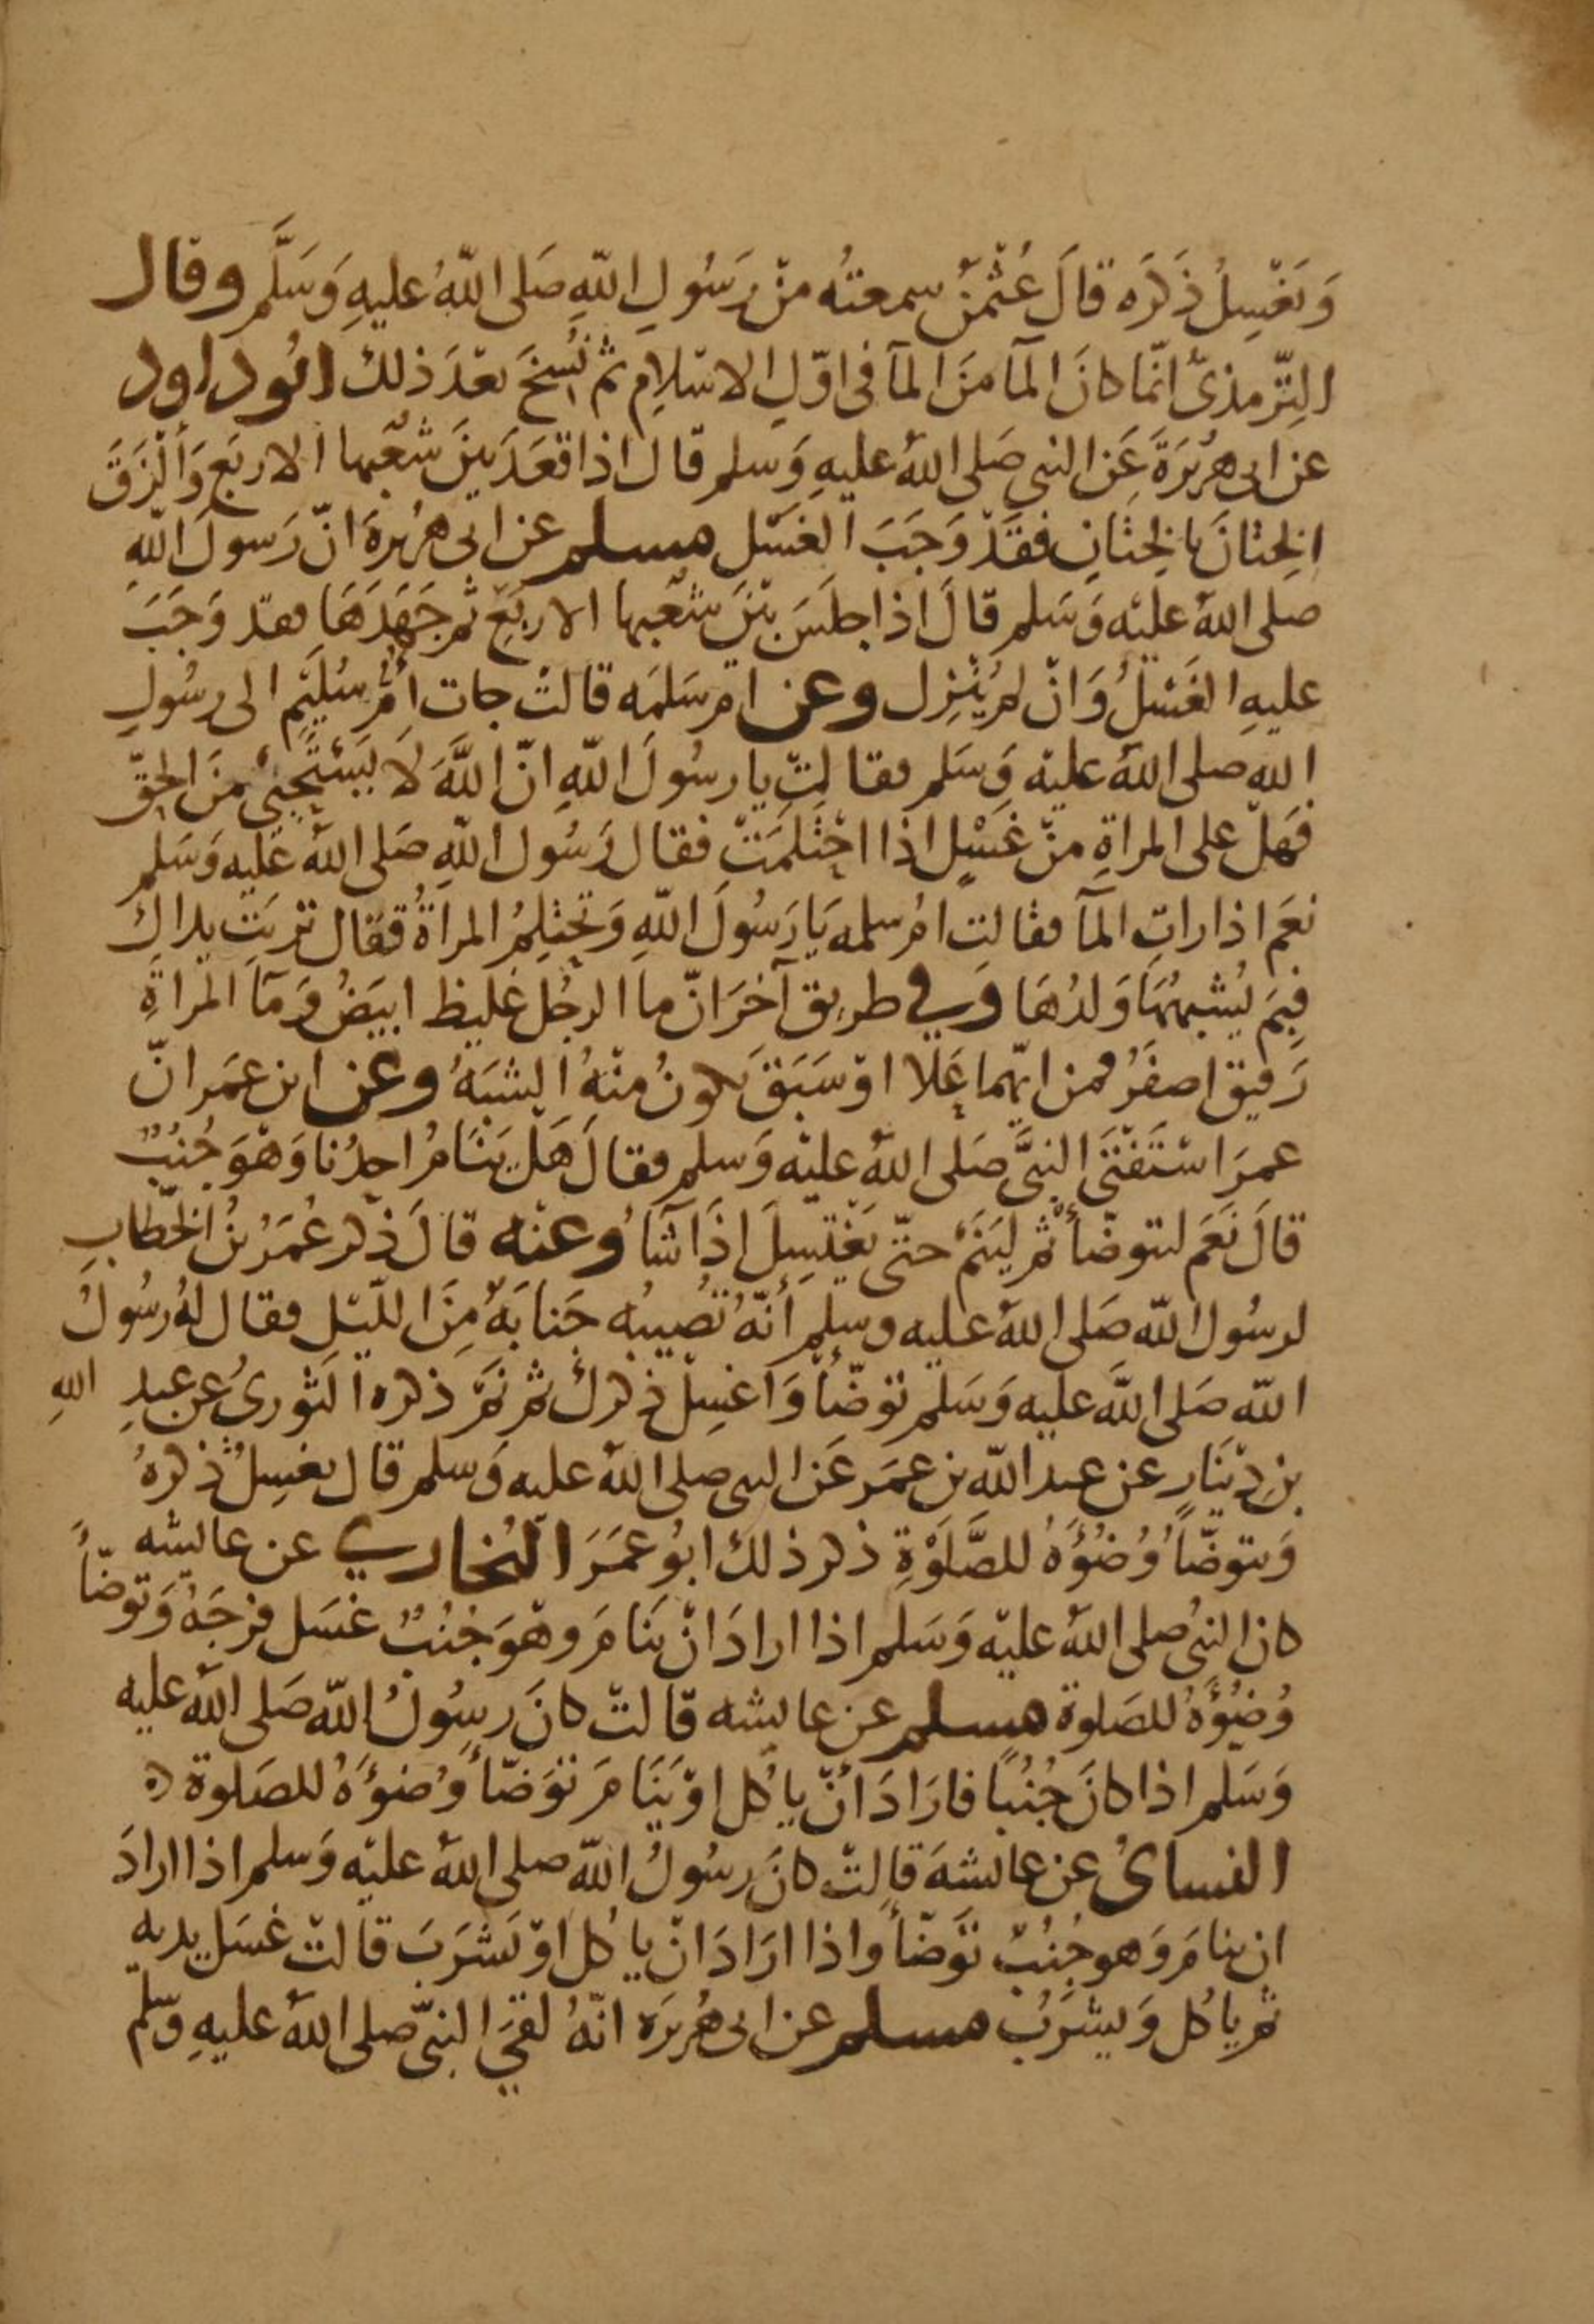 وَيَغْسِلُ ذَكَرَه قَالَ عُثْمٰنُ سمعتُه منْ رَسُولِ اللّهِ صَلى اللّهُ عليهِ وَسَلَّم وقال
التِّرمذىّ انّما كانَ المآ منَ المآ فى اوّلِ الاسْلامِ ثم نُسِخَ بعْدَ ذلك ابُو داود
عن ابى هريْرَةَ عَن النبى صَلى اللّهُ عليهِ وَسلم قال اذا قعَدَ بيْنَ شعَبها الاربَعِ وَألْزَقَ
الخِتانَ بالخِتَانِ فقَدْ وَجَبَ الغسْل مسلم عن ابى هُريرةَ انّ رَسولَ اللّهِ
صلى اللّهُ عليْه وَسَلم قالَ اذا جلَسَ بيْنَ شعَبها الاربَعِ ثم جَهَدَهَا فقد وَجَبَ
عليهِ الغَسْلُ وَانْ لم يُنْزِل وعن امّ سَلمَه قالتْ جات أمُّ سُلَيْمٍ الى رسُولِ
اللهِ صلى اللّهُ عليْه وَسَلم فقالتْ يا رسُولَ اللّهِ انّ اللَّهَ لَا يَسْتَحْيىُ منَ الحقّ
فهَلْ على المراةِ منْ غَسْلٍ اذا احْتَلمَتْ فقال رَسُول اللّهِ صَلى اللّهُ عليْه وَسَلم
نعَم اذا راتِ المآ فقالت امُ سلمه يَا رَسُولَ اللّهِ وَتحتلِمُ المراةُ فقال تربَتِ يداكِ
فبِمَ يُشبهُهَا وَلدُهَا وفي طريق آخرَ انّ ما الرجُل غليظ ابيَضُ وَمآ المراةِ
رَقيق اصفَرُ فمن ايّهما عَلا اوْ سَبَقَ يكونُ منْهُ الشبَهُ وعن ابن عمَر انّ
عمرَ اسْتَفْتَى النبىَّ صَلى اللّهُ عليْه وَسلم فقالَ هَلْ يَنَامُ احدُنا وَهْوَ جُنُبٌ
قالَ نَعَم ليتوضّأ ثم ليَنَمْ حتّى يَغْتَسِلَ اذَا شآُ وعنْه قالَ ذكر عُمَرُ بنُ الخطّابِ
لرسُول اللّه صَلى اللّهُ عليه وسلم أنّهُ تُصيبُه جَنابَهٌ مِنَ الليْلِ فقال لهُ رسُولُ
اللّه صَلى اللّهُ عليْه وَسَلم توَضّأْ وَاغسِلْ ذكرك ثم نَمْ ذكره الثورىُ عن عبدِ اللهِ
بن دِيْنَارٍ عن عبد اللّه بن عمَر عَن النبى صلى اللّهُ عليه وَسلم قال يغسِلُ ذكرهُ
وَيتوضّأُ وُضُؤَهُ للصَّلوٰةِ ذكر ذلك ابُو عمَرَ البُخاري عن عايشه
كان النبىُ صلى اللّهُ عليْه وَسَلم اذا ارادَ انْ يَنامَ وهْوَ جُنُبٌ غسَل فرجَهُ وَتوضّأَ
وُضُؤَهُ للصَلوة مسلم عن عايشه قالتْ كانَ رسُولُ اللّه صَلى اللّهُ عليه
وَسَلم اذا كانَ جُنُبًا فارَادَ أنْ يا كُل اوْ يَنَامَ توَضّأَ وُضؤَهُ للصَلوة ه
النساىُ عن عايشهَ قالتْ كانَ رسُولُ اللّه صلى اللّهُ عليْه وَسلم اذا ارادَ
ان ينامَ وَهو جُنُبٌ توَضّأَ واذا ارَادَ انْ يا كُل اوْ يَشْرَبَ قالتْ غسَل يديه
ثم يا كُل وَيشرَبُ مسلم عن ابى هُريرَه انّهُ لقىَ النبىّ صلى اللّهُ عليهِ وَسلّم